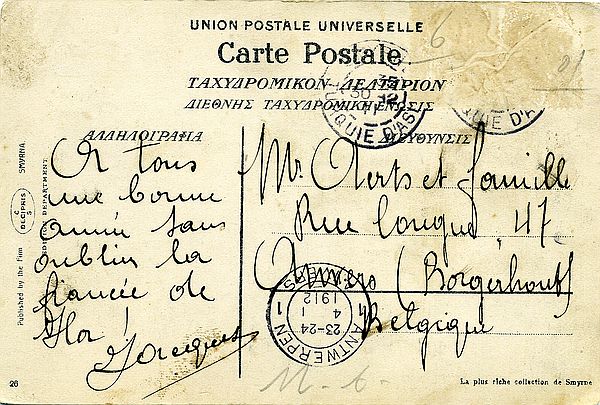 UNION POSTALE UNIVERSELLE
Carte Postale.
ΤΑΧΥΔΡΟΜΙΚΟΝ ΔΕΛΤΑΡΙΟΝ
ΔΙΕΘΝΗΣ ΤΑΧΥΔΡΟΜΙΚΗ ΕΝΩΣΙΣ
6
21
30 12 11
TURQUIE D'ASIE
UIE D'A
ΑΛΛΗΛΟΓΡΑΦΙΑ
ΔΙΕΥΘΥΝΣΙΣ
A tous
une bonne
année sans
oublier la
fiancée de
Flor !
Jacques
Mr. Aerts et Famille
Rue longue 47
Anvers (Borgerhout)
Belgique
ANTWERPEN 1 ANVERS 1
23-24
1 4
1912
Published by the Firm
SMYRNA
EDITION DEPARTMENT
26
La plus riche collection de Smyrne